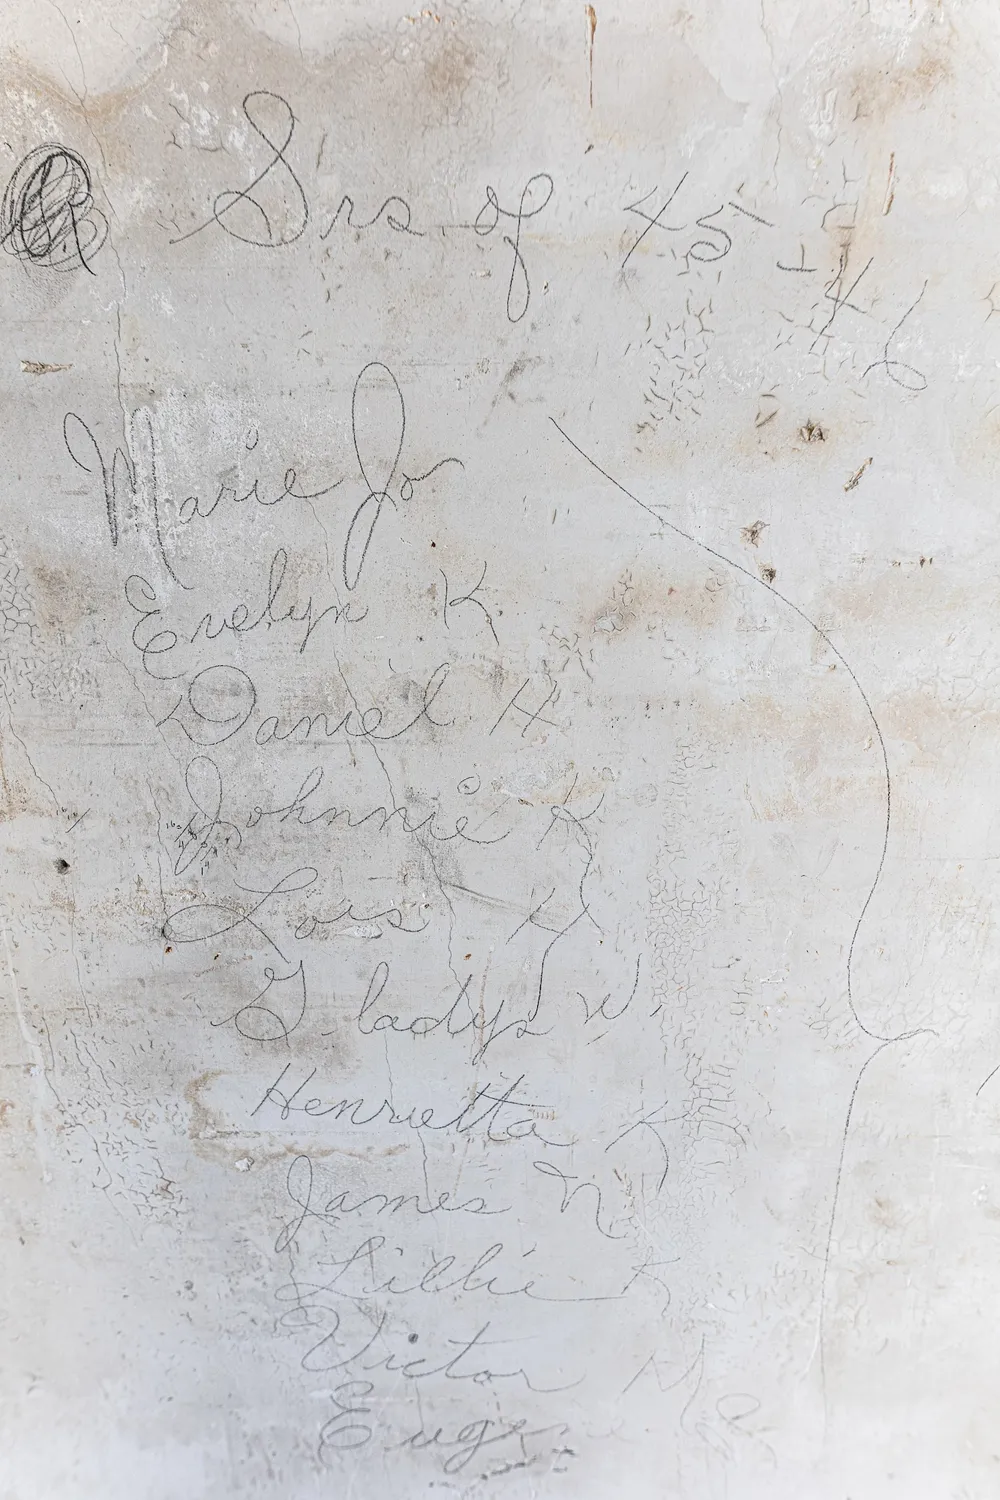 Srs of 45-46
Marie Jo
Evelyn K.
Daniel H
Johnnie K
Lois H
Gladys W.
Henrietta K
James N
Lillie K
Victor M
Eugene